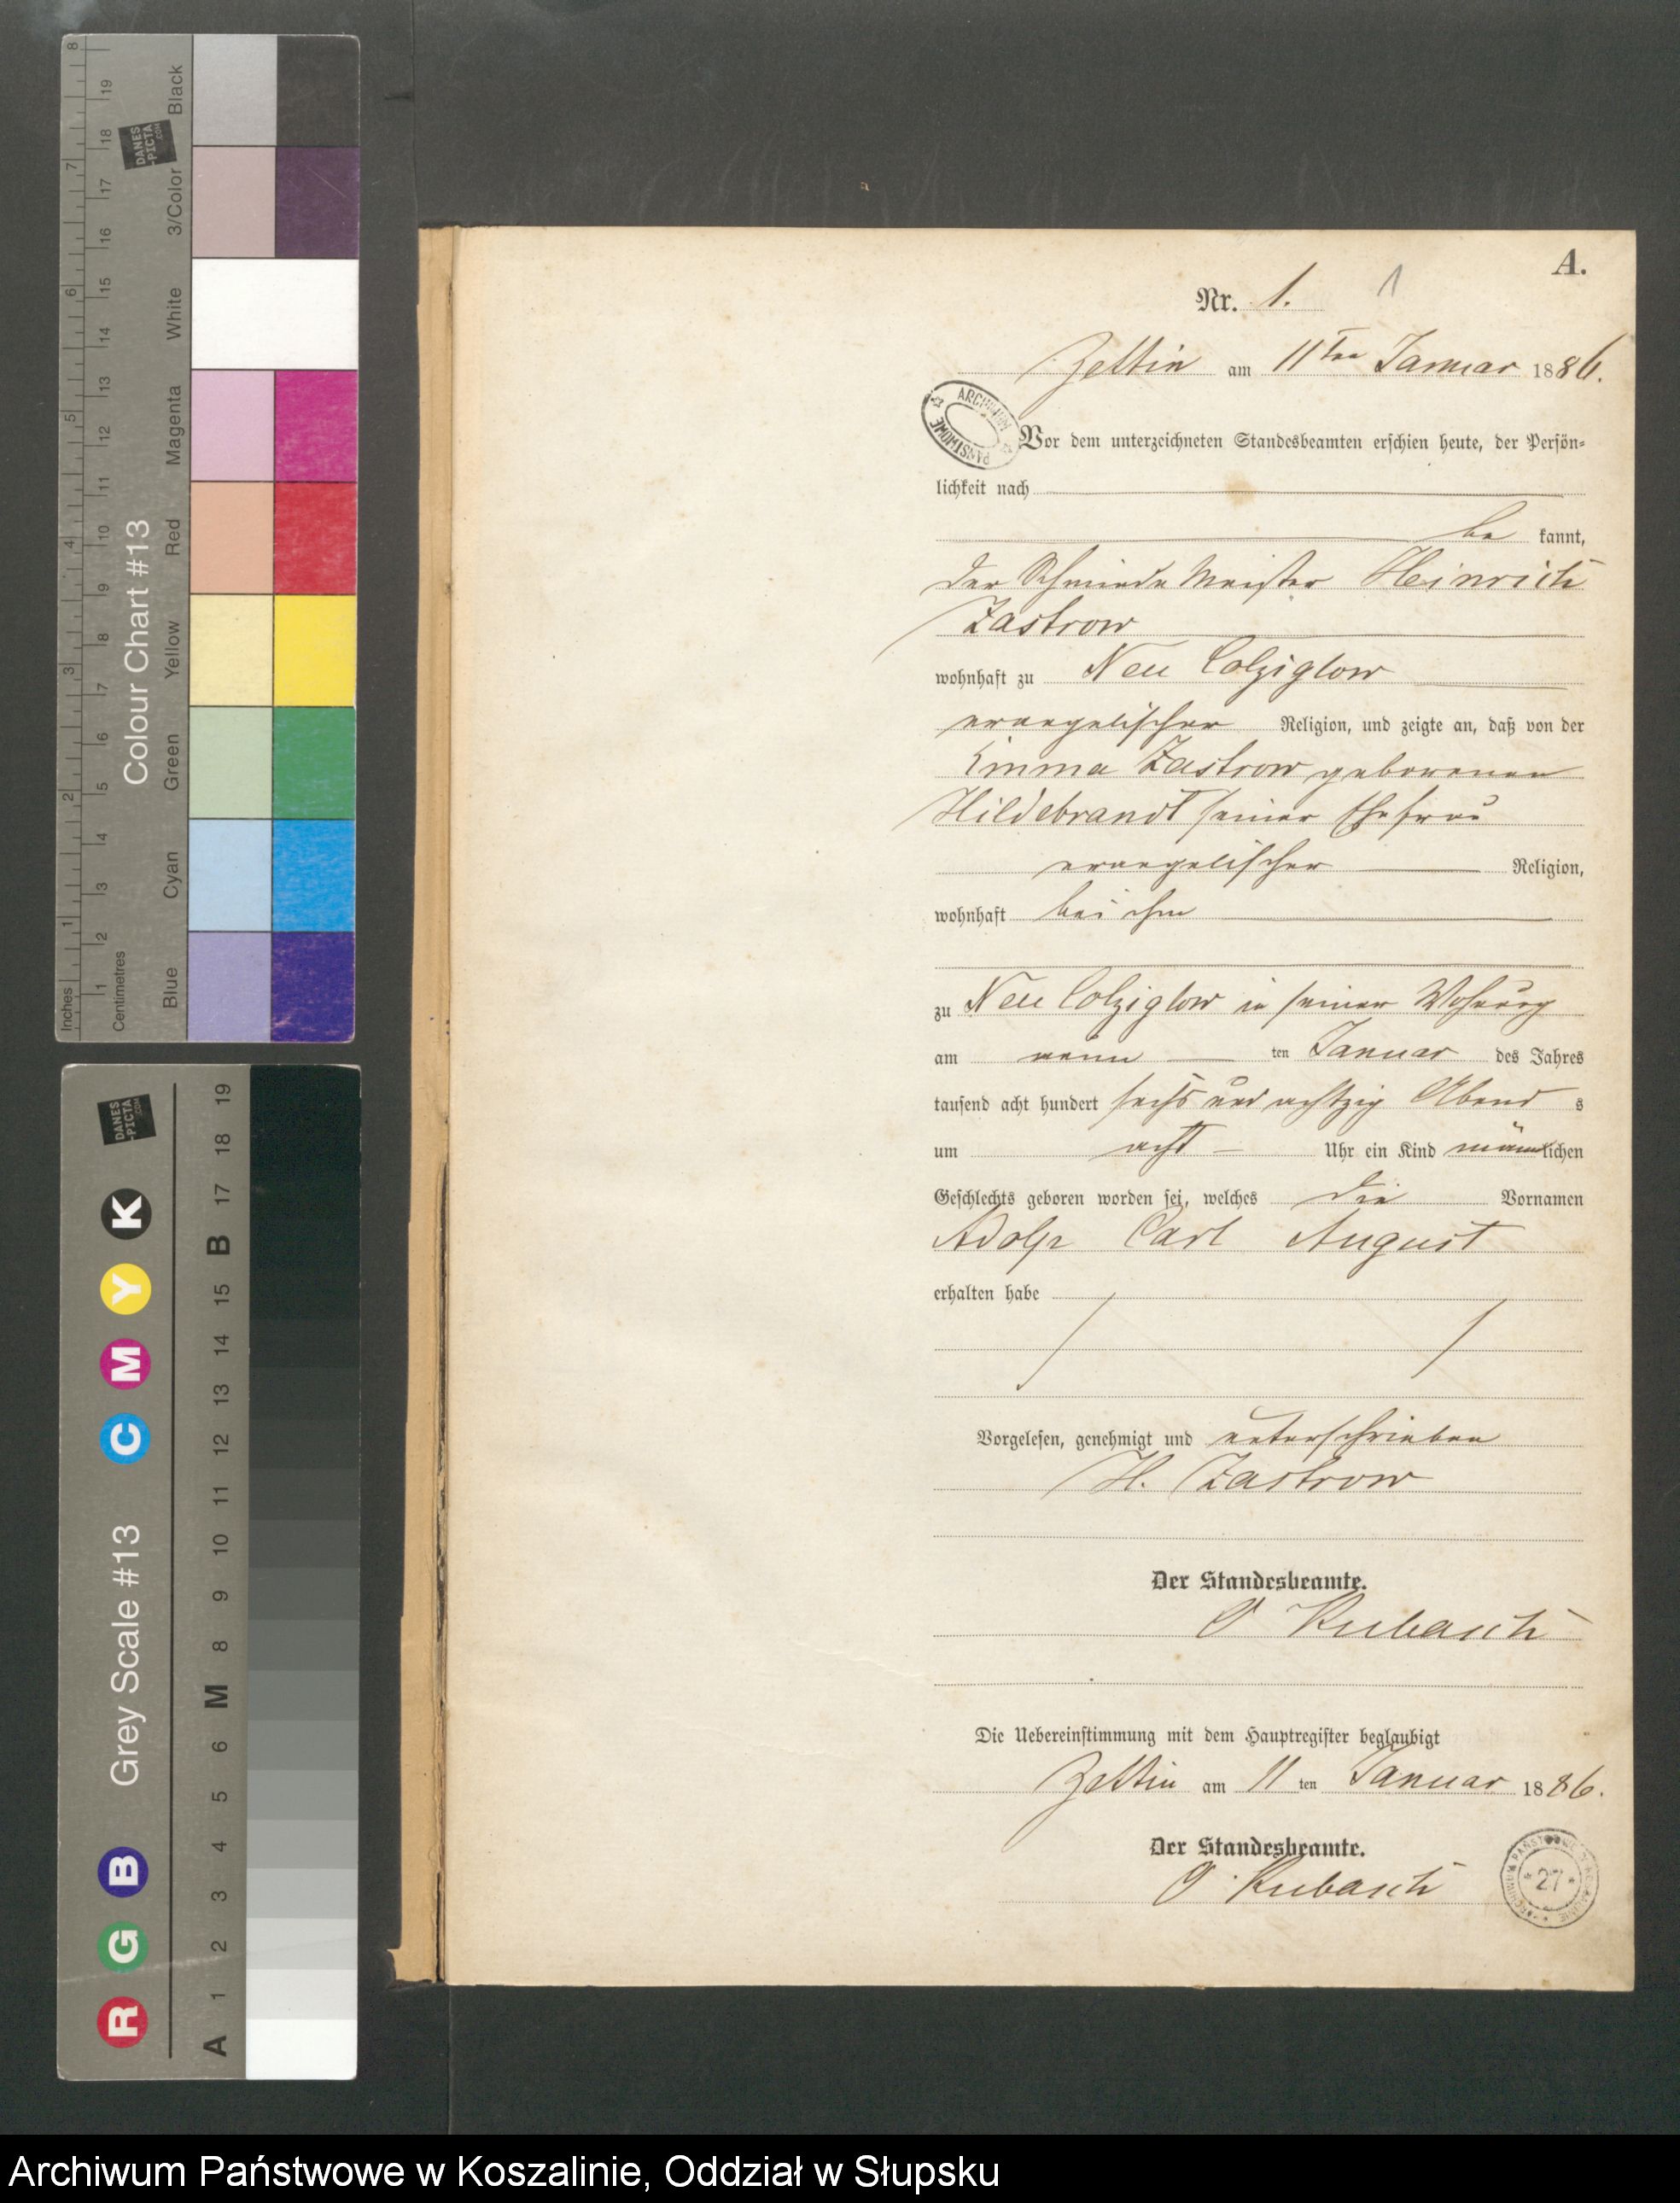 A.
Nr. 1. 1
Zettin am 11ten Januar 1886.
ARCHIWUM PAŃSTWOWE
Vor dem unterzeichneten Standesbeamten erschien heute, der Persön-
lichkeit nach
be kannt,
der Schmiede Meister Heinrich
Zastrow
wohnhaft zu Neu Colziglow
evangelischer Religion, und zeigte an, daß von der
Emma Zastrow geborenen
Hildebrandt seiner Ehefrau
evangelischer Religion,
wohnhaft bei ihm
zu Neu Colziglow in seiner Wohnung
am neun ten Januar des Jahres
tausend acht hundert sechs und achtzig Abend s
um acht Uhr ein Kind männlichen
Geschlechts geboren worden sei, welches die Vornamen
Adolf Carl August
erhalten habe
Vorgelesen, genehmigt und unterschrieben
H. Zastrow
Der Standesbeamte.
O Kubasch
Die Uebereinstimmung mit dem Hauptregister beglaubigt
Zettin am 11 ten Januar 1886.
Der Standesbeamte.
O. Kubasch
27
Inches 1 2 3 4 5 6 7 8
Centimetres 1 2 3 4 5 6 7 8 9 10 11 12 13 14 15 16 17 18 19
Colour Chart #13
Blue Cyan Green Yellow Red Magenta White 3/Color Black
DANES
-PICTA
.COM
Grey Scale #13
R G B C M Y K
A 1 2 3 4 5 6 M 8 9 10 11 12 13 14 15 B 17 18 19
DANES
-PICTA
.COM
Archiwum Państwowe w Koszalinie, Oddział w Słupsku